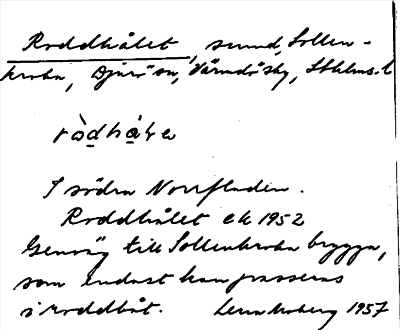 Roddhålet, sund, Sollen-
kroka, Djurö sn, Värmdö skg, Sthlms. l
ròdhá̱ɫe
I södra Norrfladen.
Roddhålet ek 1952
Genväg till Sollenkroka brygga,
som endast kan passeras
i roddbåt. 1957